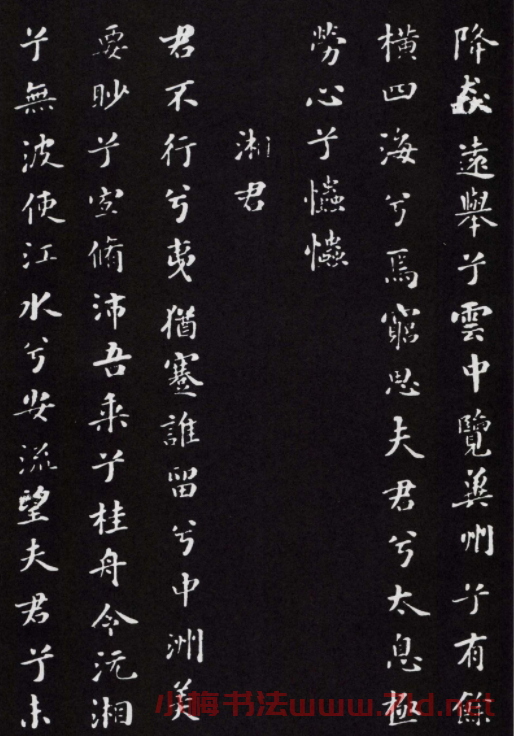 降猋遠舉兮雲中覽冀州兮有餘
橫四海兮焉窮思夫君兮太息極
勞心兮𢥞𢥞
湘君
君不行兮夷猶蹇誰留兮中洲美
要眇兮宜脩沛吾乘兮桂舟令沅湘
兮無波使江水兮安流望夫君兮未
小梅书法